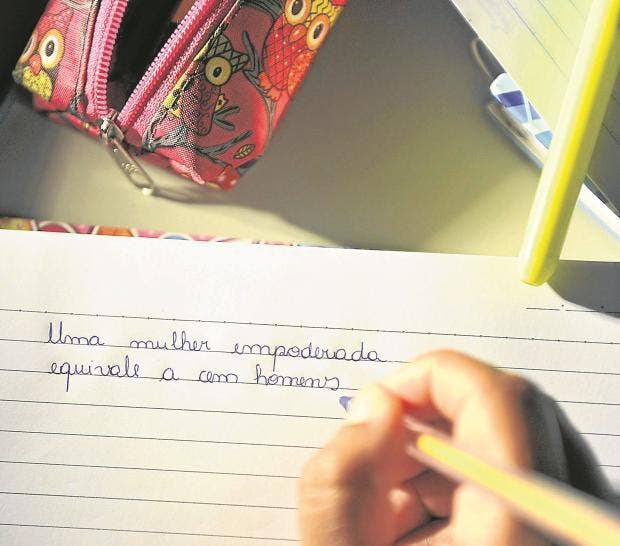 Uma mulher empoderada
equivale a cem homens